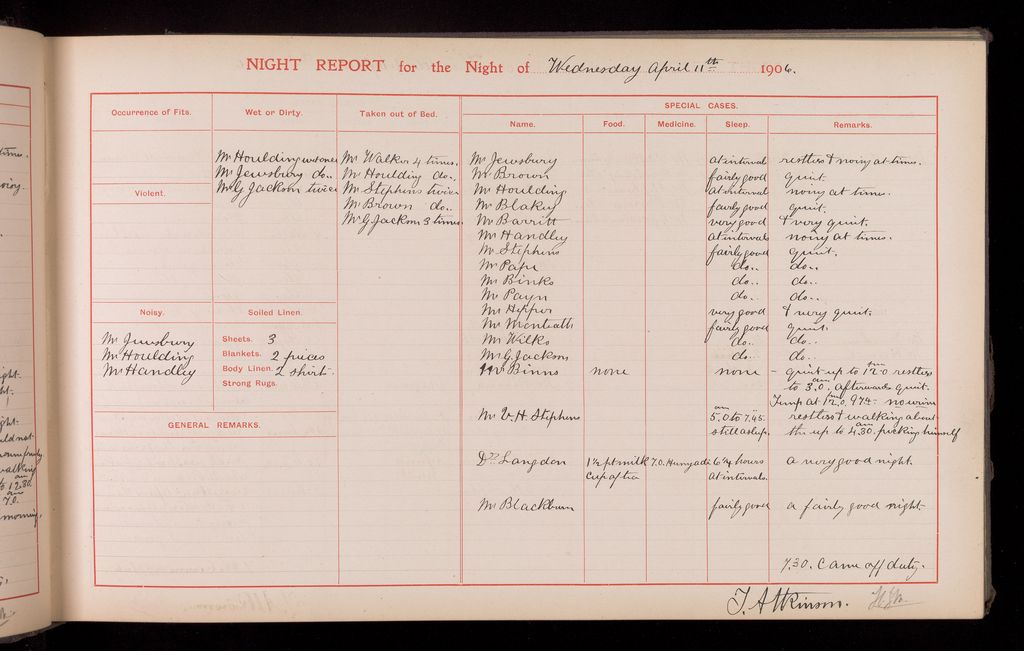 NIGHT REPORT for the Night of Wednesday April 11th 1906.
Occurrence of Fits.
Wet or Dirty.
Taken out of Bed.
SPECIAL CASES.
Name.
Food.
Medicine.
Sleep.
Remarks.
Mr Houlding wet once
Mr Jewsbury do..
Mr G Jackson twice
Mr Walker 4 times.
Mr Houlding do..
Mr Stephens twice
Mr Brown do..
Mr G Jackson 3 times
Violent.
Noisy.
Mr Jewsbury
Mr Houlding
Mr Handley
Soiled Linen.
Sheets. 3
Blankets. 2 pieces
Body Linen. 2 shirts.
Strong Rugs.
GENERAL REMARKS.
Mr Jewsbury at interval restless & noisy at times.
Mr Brown fairly good quiet.
Mr Houlding at interval noisy at times.
Mr Blakey fairly good quiet.
Mr Barritt very good & very quiet.
Mr Handley at intervals noisy at times.
Mr Stephens fairly good quiet.
Mr Pape do.. do..
Mr Binks do.. do..
Mr Payn do.. do..
Mr Hepper very good & very quiet.
Mr Menteath fairly good quiet.
Mr Wilks do.. do..
Mr G Jackson do.. do..
Mr Binns none none - quiet up to 12.0 restless
to 3.0 am. afterwards quiet.
Temp at 12.0. 97.4 - no urine
Mr V. H. Stephens 5.0 am to 7.45. restless & walking about
still asleep. up to 4.30 am. picking himself
Dr Langdon 1½ pt milk 7.0. Hunyadi 6¼ hours a very good night.
Cup of tea at intervals.
Mr Blackburn fairly good a fairly good night.
7.30. Came off duty.
T. Atkinson.